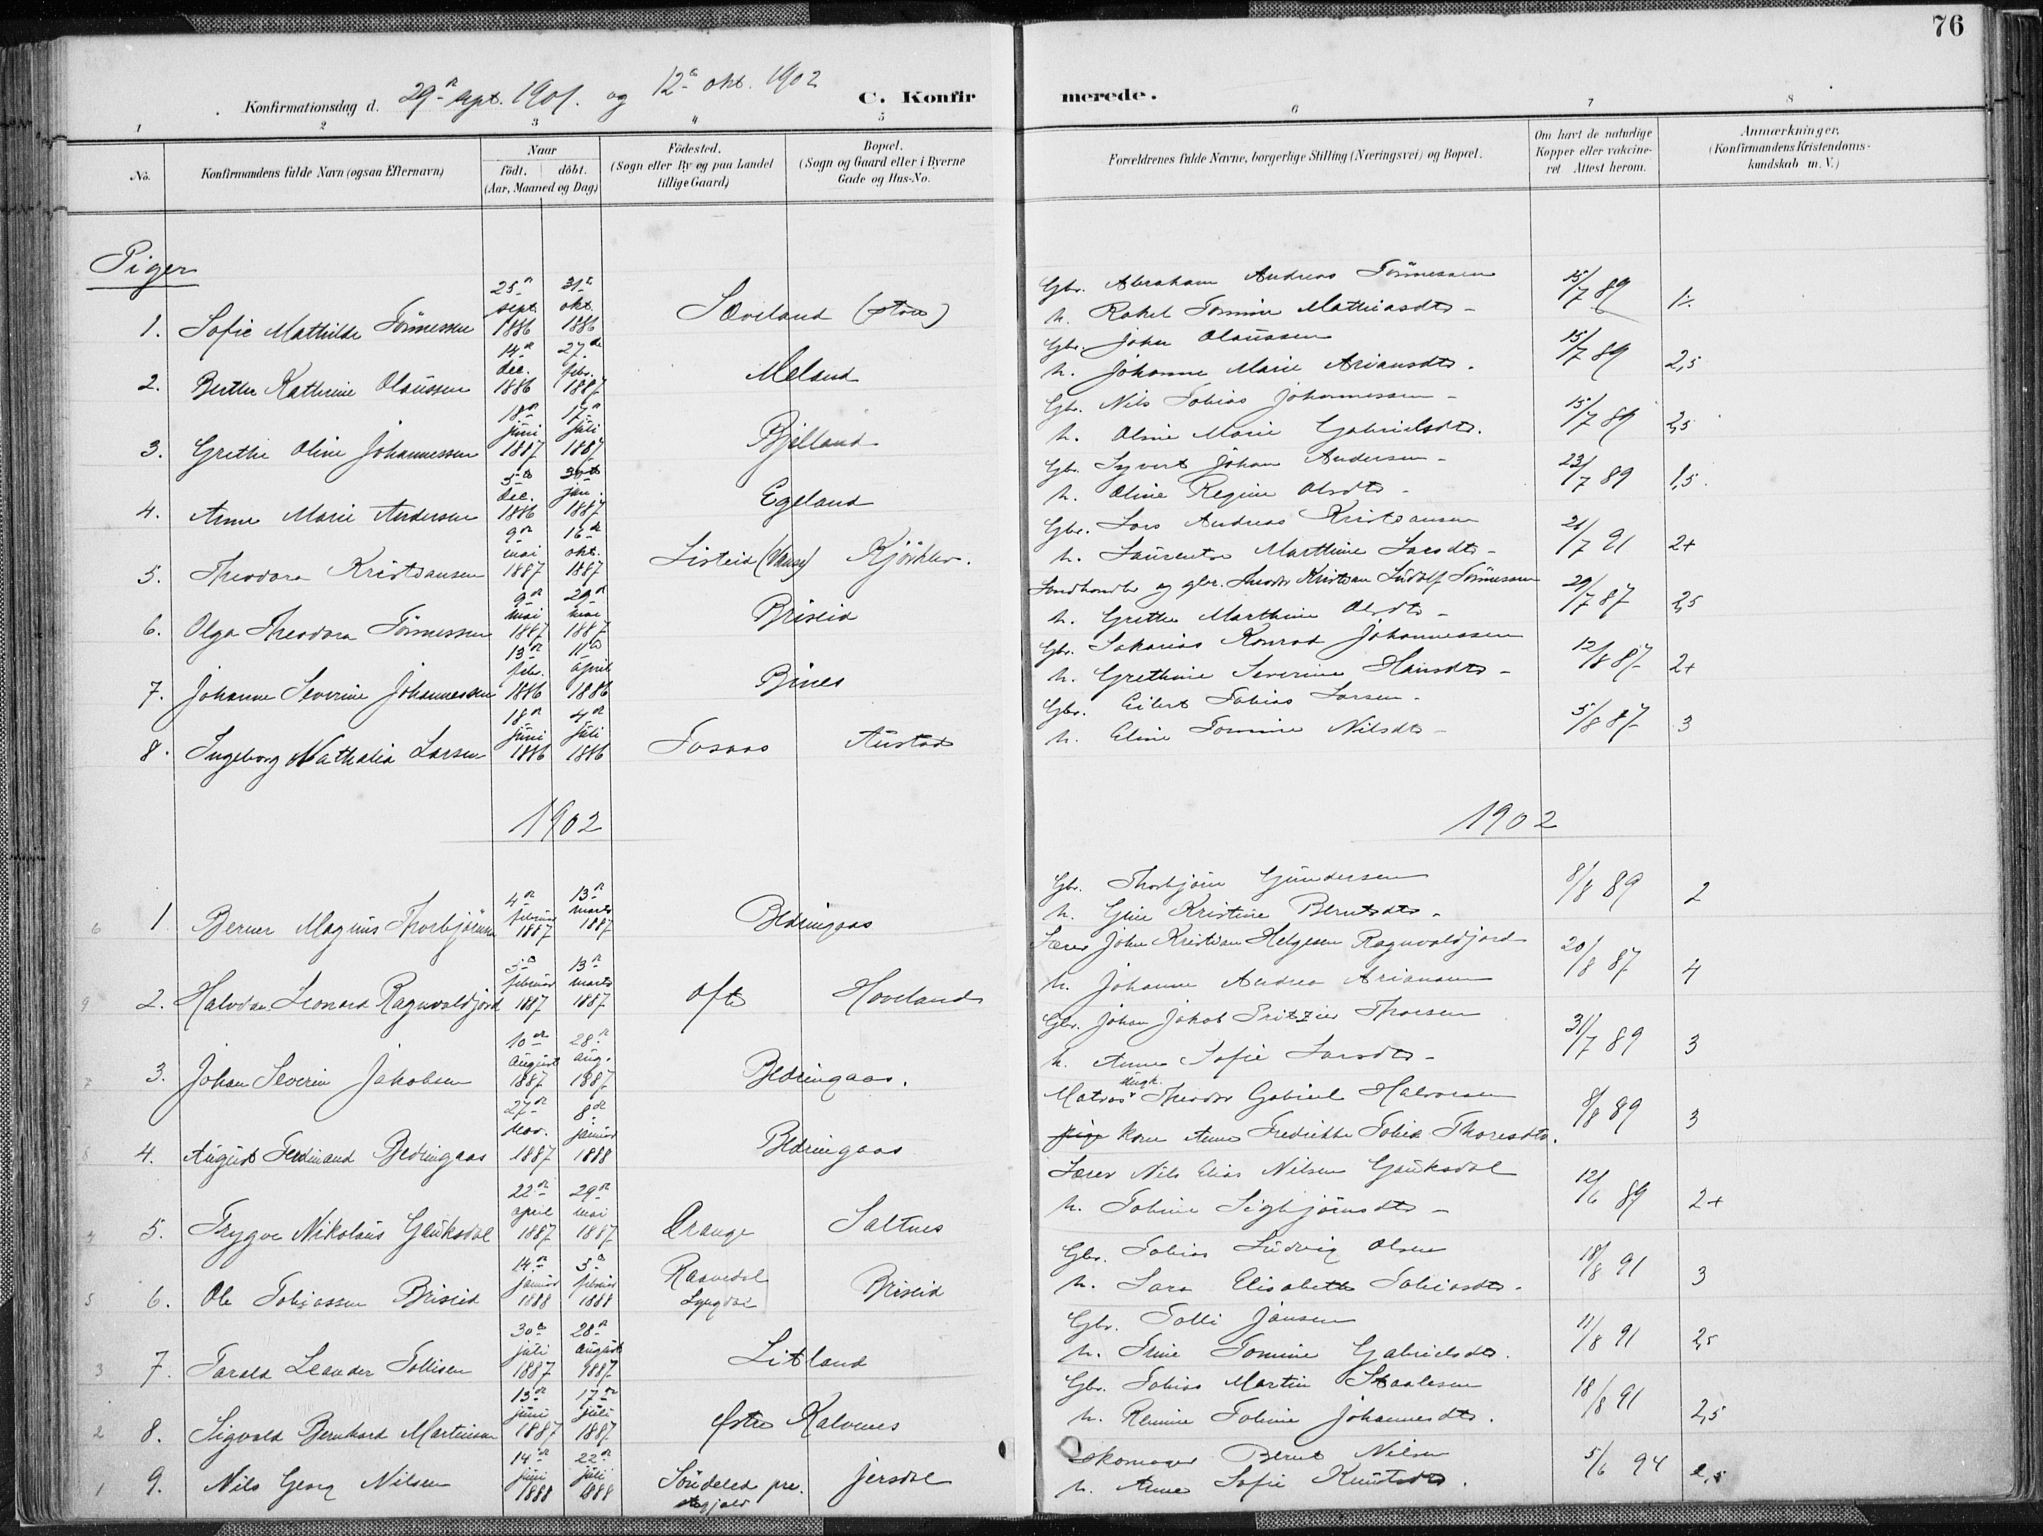 76
Konfirmationsdag d. 29de sept. 1901. og 12te okt. 1902 C. Konfirmerede.
1 2 3 4 5 6 7 8
No. Konfirmandens fulde Navn (ogsaa Efternavn) Naar født. døbt. (Aar, Maaned og Dag) Fødested. (Sogn eller By og paa Landet tillige Gaard) Bopæl. (Sogn og Gaard eller i Byerne Gade og Hus-No. Forældrenes fulde Navne, borgerlige Stilling (Næringsvei) og Bopæl. Om havt de naturlige Kopper eller vakcineret Attest herom. Anmærkninger, (Konfirmandens Kristendomskundskab m. V.)
Piger
1. Sofie Mathilde Tönnessen 25de sept. 1886 31te okt. 1886 Sæveland Gbr. Abraham Andreas Tönnessen h. Rakel Tomine Mathiasdtr 15/7 89
2. Berthe Kathrine Olaussen 14de dec. 1886 27de febr. 1887 Meland Gbr. Johan Olaussen h. Johanne Marie Ariansdtr. 15/7 89 2,5
3. Grethe Oline Johannessen 18de juni 1887 17de juli 1887 Bjelland Gbr. Nils Tobias Johannessen h. Oline Marie Gabrielsdtr. 15/7 89 2,5
4. Anne Marie Andersen 5te dec. 1886 jan. 1887 Egeland Gbr. Syvert Johan Andersen h. Oline Regine Olsdtr 23/7 89 1,5
5. Theodora Kristiansen 9de mai 1887 16de okt. 1887 Listeid (Vanse) Gbr. Lars Andreas Kristiansen h. Laurentse Marthine Larsdtr 21/7 91 2+
6. Olga Theodora Tönnessen 9de mai 1887 29de mai 1887 Briseid Landhandler og gbr. Theodor Kristian Ludolf Tönnessen h. Grethe Marthine Olsdtr 29/7 87 2,5
7. Johanne Severine Johannessen 13de febr. 1886 11te april 1886 Gbr. Sakarias Konrad Johannessen h. Grethine Severine Hansdtr 12/8 87 2+
8. Ingeborg Nathalia Larsen 18de juni 1886 4de juli 1886 Austad Gbr. Eilert Tobias Larsen h. Eline Tomine Nilsdtr 5/8 87 3
1902 1902
6 1 Berner Magnus Thorbjörnsen 4de februar 1887 13de marts 1887 Gbr. Thorbjörn Gundersen h. Gine Kristine Berntsdtr. 8/8 89 2
9 2. Halvdan Leonard Ragnvaldjord 5te februar 1887 13de marts 1887 Ofte Hoveland Lærer John Kristian Helgesen Ragnvaldjord h. Johanne Andrea Ariansen 20/8 87 4
7 3. Johan Severin Jakobsen 10de august 1887 28de aug. 1887 Gbr. Johan Jakob Fritzier Thorsen h. Anne Sofie Larsdtr 31/7 89 3
8 4. August Ferdinand 27de nov. 1887 8de januar 1888 Matros Theodor Gabriel Halvorsen kone Anne Fredrikke Tobia Thoresdtr. 8/8 89 3
4 5. Trygve Nikolaus Gauksdal 22de april 1887 29de mai 1887 Orange Saltnes Lærer Nils Elias Nilsen Gauksdal h. Tobine Sigbjörnsdtr 12/6 89 2+
5 6. Ole Tobiassen Briseid 14de januar 1888 5te februar 1888 Lyngdal Briseid Gbr. Tobias Ludvig Olsen h. Sara Elisabeth Tobiasdtr. 18/8 91 3
3 7. Tarald Leander Tollisen 30te juli 1887 28de august 1887 Litland Gbr. Tolli Jansen h. Trine Tomine Gabrielsdtr. 11/8 91 2,5
2 8. Sigvald Bernhard Martinsen 13de juni 1887 17de juli 1887 Østre Kalvenes Gbr. Tobias Martin Staalesen h. Remine Tobine Johannesdtr. 18/8 91 2,5
1 9. Nils Georg Nilsen 14de juni 1888 22de juli 1888 Söndeled prestegjeld Jersdal Skomager Bernt Nilsen h. Anne Sofie Knutsdtr. 5/6 94 2,5